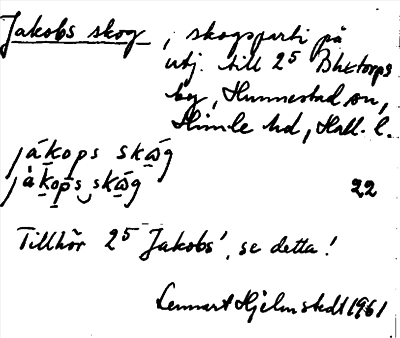 Jakobs skog, skogsparti på
utj. till 2⁵ Bhktorps
by, Hunnestad sn,
Himle hd, Hall. l.
jákops skω̄g
jàkops skω̄g 22
Tillhör 2⁵ Jakobs', se detta!
Lennart Hjelmstedt 1961